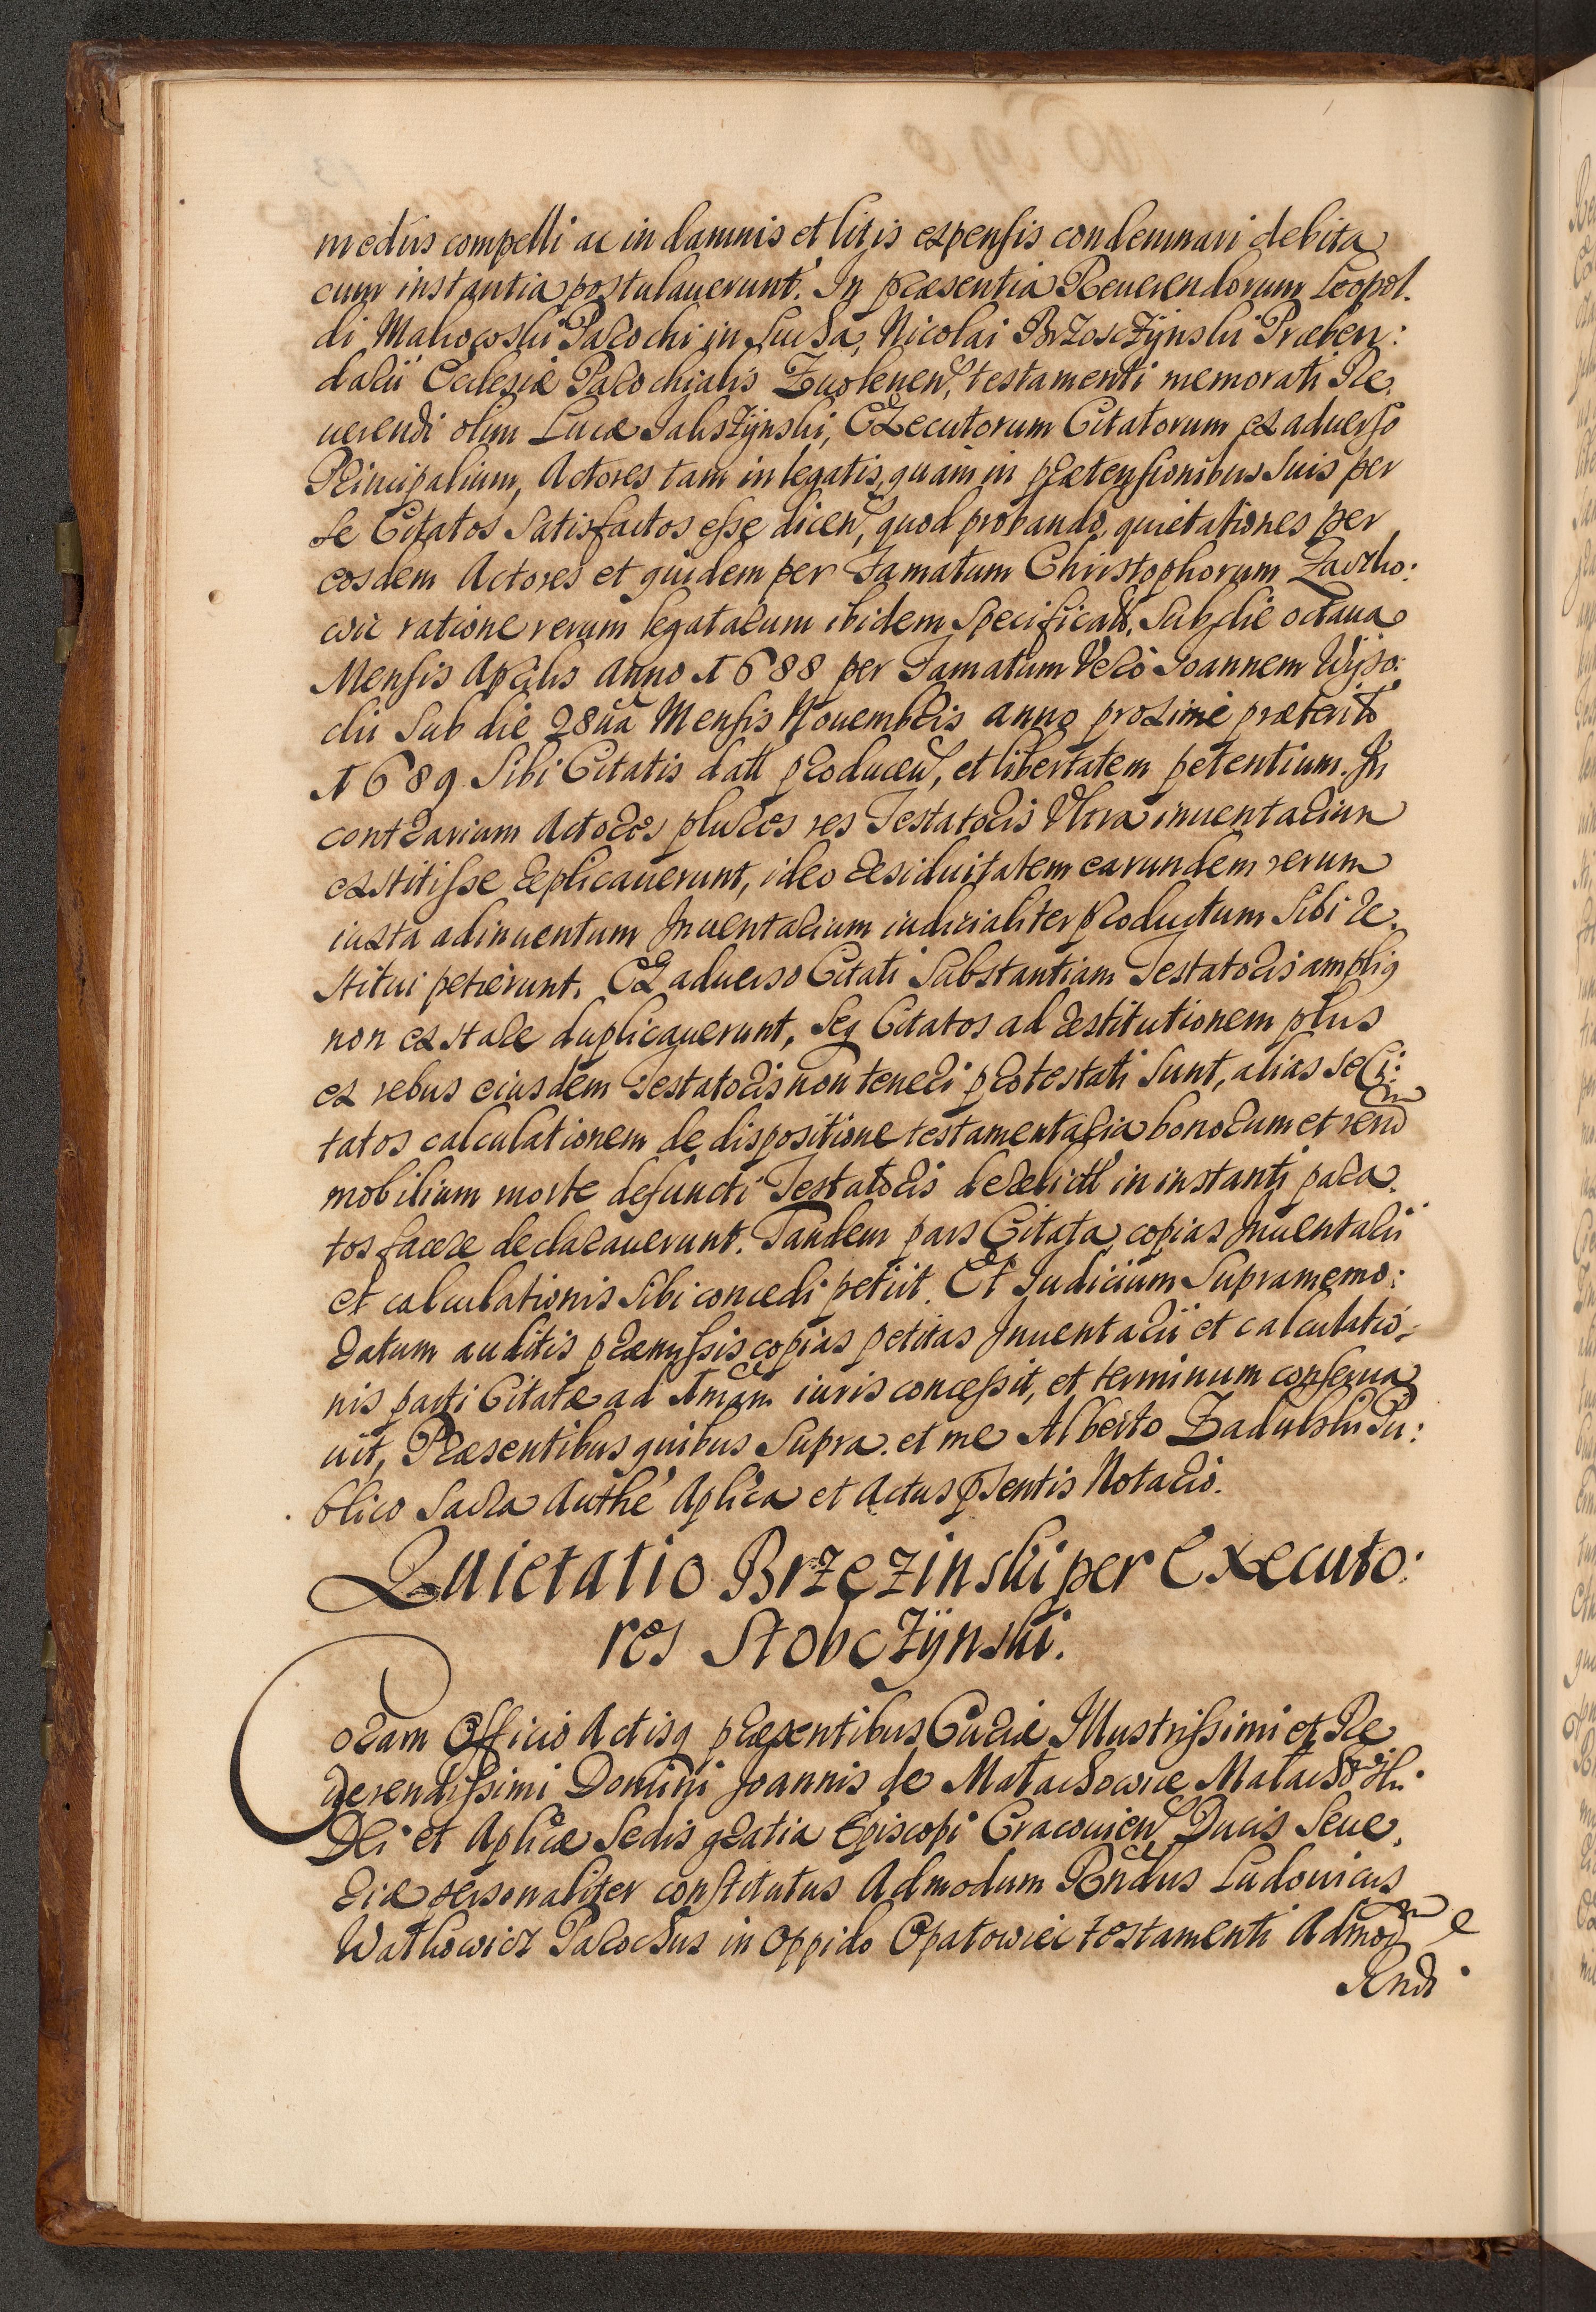 medijs compelli ac in damnis et litis expensis condemnari debita
cum instantia postulauerunt. In præsentia Reuerendorum Leopol.
di Makowski Parochi in Nicolai Brzosczÿnski Præben:
darii Ecclesiæ Parochialis Zuolenen, testamenti memorati Re.
uerendi olim Lucæ Jakszÿnski, Executorum Citatorum ex aduerso
Principalium, Actores tam in legatis, quam in prætensionibus suis per
se Citatos satisfactos esse dicen, quod probando, quietationes per
eosdem Actores et quidem per Famatum Christophorum
wic ratione rerum legatarum ibidem specificat, sub die octaua
Mensis Aprilis anno 1688 per Famatum Vero Joannem Wÿso:
cki sub die 28ua Mensis Nouembris anno proxime præterito
1689 sibi Citatis datt producen, et libertatem petentium. In
contrarium Actores plures res Testatoris Vltra inuentarium
exstitisse replicauerunt, ideo residuitatem earundem rerum
iuxta adinuentum Inuentarium iudicialiter productum sibi re.
stitui petierunt. Ex aduerso Citati substantiam Testatoris ampliq
non exstare duplicauerunt, seq Citatos ad restitutionem plus
ex rebus eiusdem Testatoris non teneri protestati sunt, alias se Ci:
tatos calculationem de dispositione testamentaria bonorum et rerum
mobilium morte defuncti Testatoris derelictt in instanti para.
tos facere declarauerunt. Tandem pars Citata copias Inuentarii
et calculationis sibi concedi petiit. Et Judicium supramemo:
ratum auditis præmissis copias petitas Inuentarii et calculatio:
nis parti Citatæ ad 1mam iuris concessit, et terminum conserua
uit, Præsentibus quibus supra. et me Alberto Zadulski Pu:
blico Sacra Authe Aplica et Actus psentis Notario.
Quietatio Brzezinski per Executo:
res Stobczÿnski.
Coram Officio Actisq præsentibus Curiæ Illustrissimi et Re
uerendissimi Domini Joannis de Malachowice Malachowski
Dei et Aplicæ Sedis gratia Episcopi Cracouien Ducis Seue.
riæ personaliter constitutus Admodum Rndus Ludouicus
Watkowicz Parochus in oppido Opatowiec testamenti Admodum
Rndi